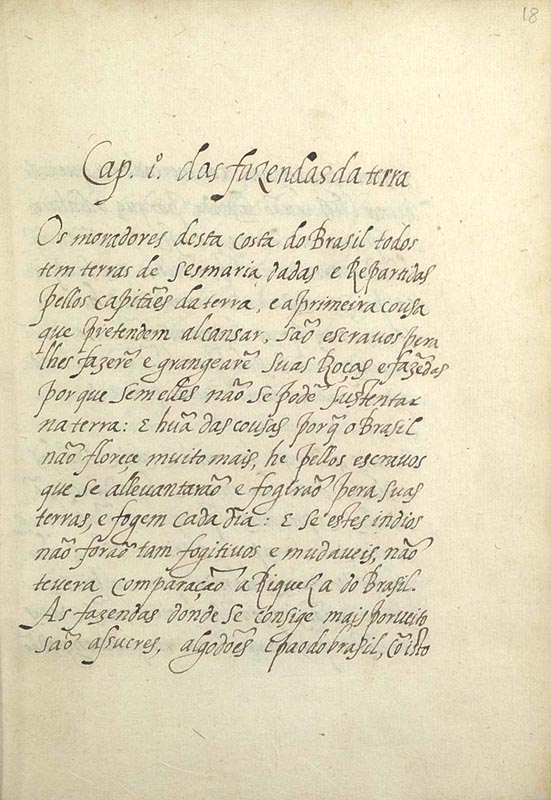 18
Cap. 1º das fazendas da terra
Os moradores desta costa do Brasil todos
tem terras de sesmaria dadas e Repartidas
pellos capitães da terra, e a primeira cousa
que pretendem alcansar, são escravos pera
lhes fazerẽ e grangearẽ suas Roças e fazẽdas
porque sem elles não se podẽ sustentar
na terra: E hũa das cousas porq̃ o Brasil
não florece muito mais, he pellos escravos
que se allevantarão e fogirão pera suas
terras, e fogem cada dia: E se estes indios
não forão tam fogitivos e mudaveis, não
tevera comparação a Riqueza do Brasil.
As fazendas donde se consige mais proveito
são assucres, algodões e pao do brasil, cõ isto